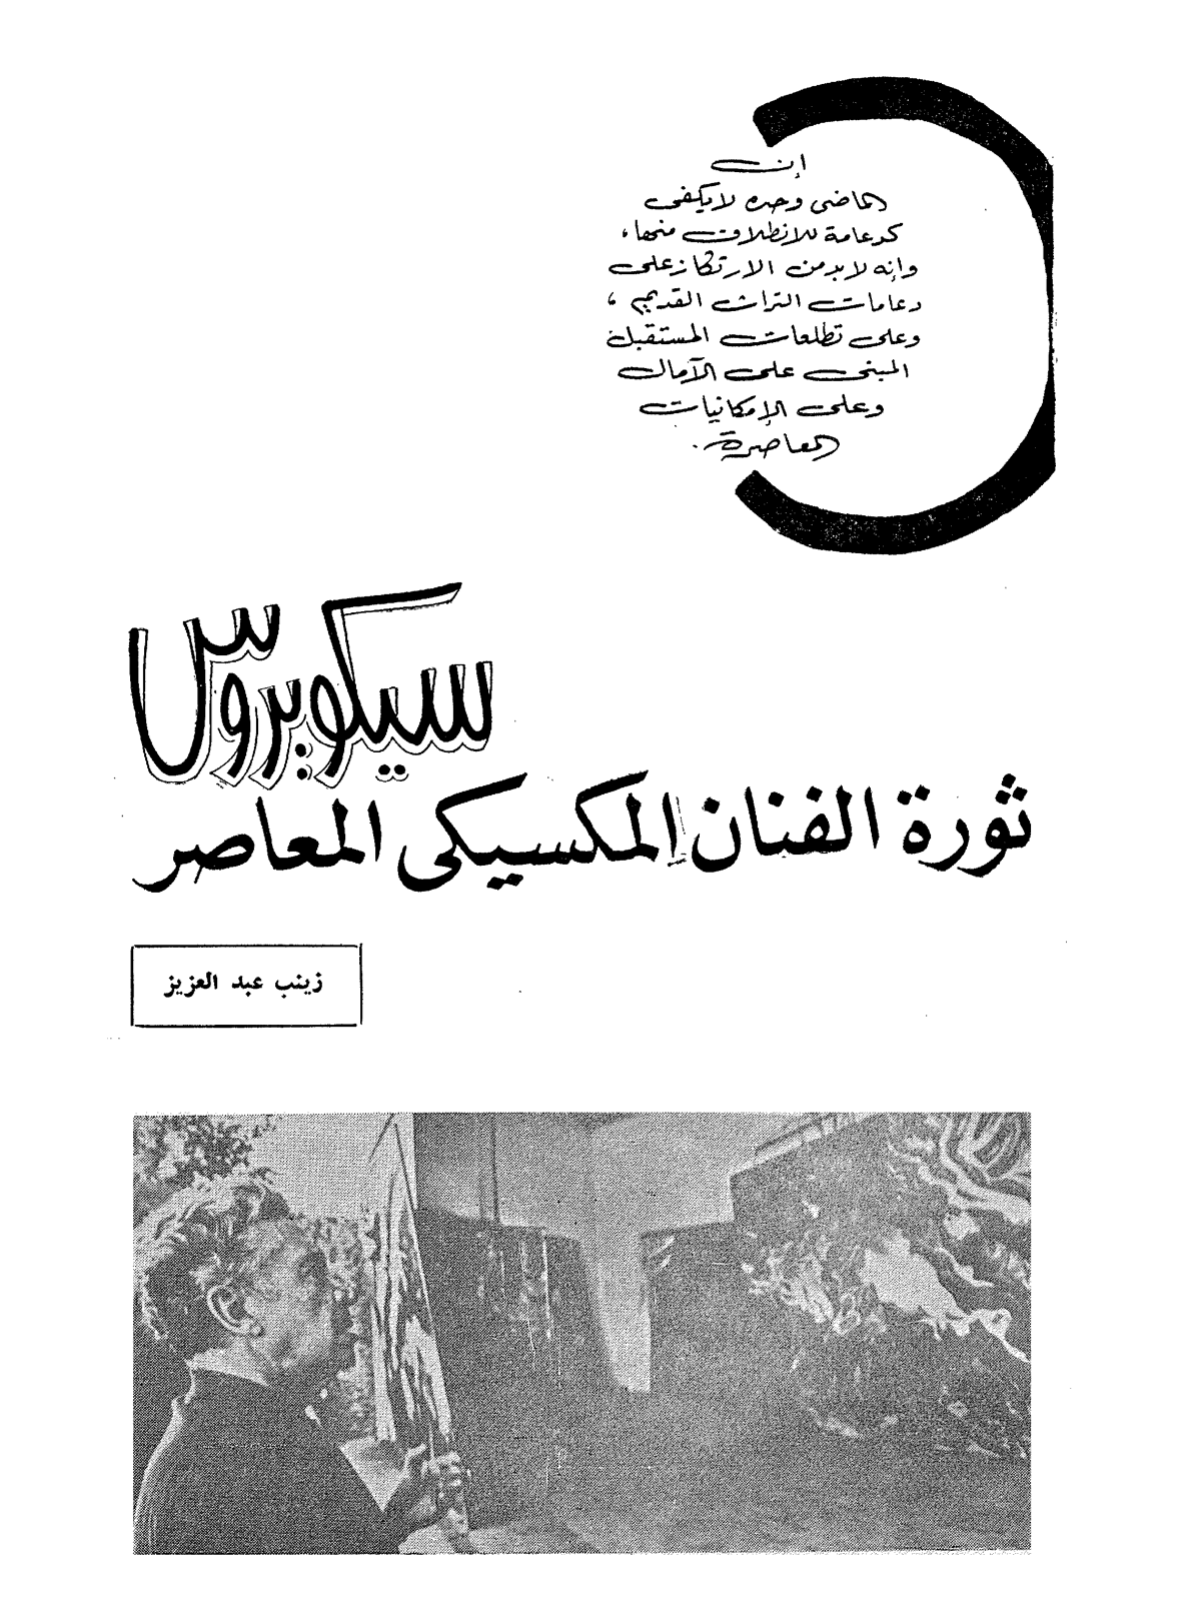 إن
الماضى وحده لا يكفى
كدعامة للانطلاق منها،
وإنه لابد من الارتكاز على
دعامات التراث القديم،
وعلى تطلعات المستقبل
المبنى على الآمال
وعلى الإمكانيات
المعاصرة.
سيكويروس
ثورة الفنان المكسيكى المعاصر
زينب عبد العزيز